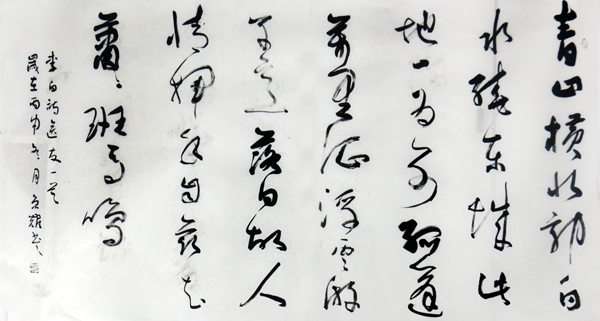 青山橫北郭白
水繞東城此
地一為別孤蓬
萬里征浮雲游
子意落日故人
情揮手自茲去
蕭々班馬鳴
李白詩送友一首
歲在丙申冬月耀書